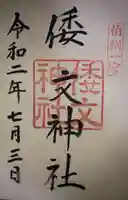 伯耆一宮
倭文神社
倭文神社
令和二年七月三日